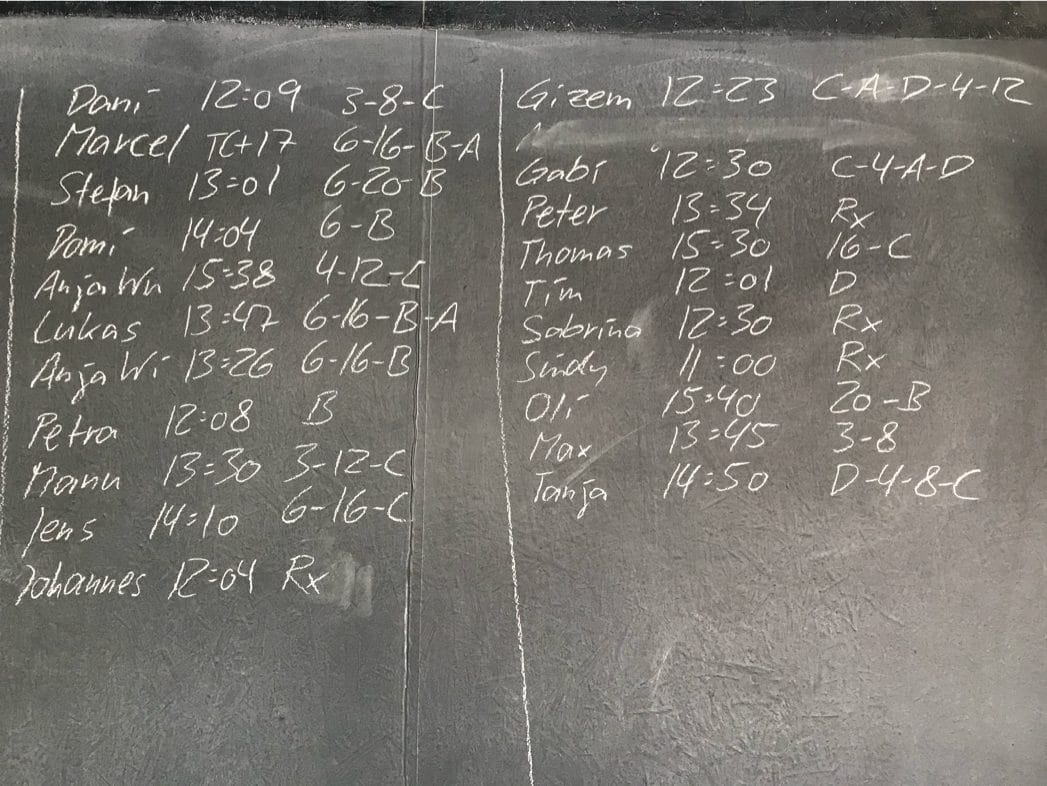 Dani 12:09 3-8-C
Marcel TC+17 6-16-B-A
Stefan 13:01 6-20-B
Domi 14:04 6-B
Anja Wu 15:38 4-12-C
Lukas 13:47 6-16-B-A
Anja Wi 13:26 6-16-B
Petra 12:08 B
Manu 13:30 3-12-C
Jens 14:10 6-16-C
Johannes 12:04 Rx
Gizem 12:23 C-A-D-4-12
Gabi 12:30 C-4-A-D
Peter 13:34 Rx
Thomas 15:30 16-C
Tim 12:01 D
Sabrina 12:30 Rx
Sindy 11:00 Rx
Oli 15:40 20-B
Max 13:45 3-8
Tanja 14:50 D-4-8-C